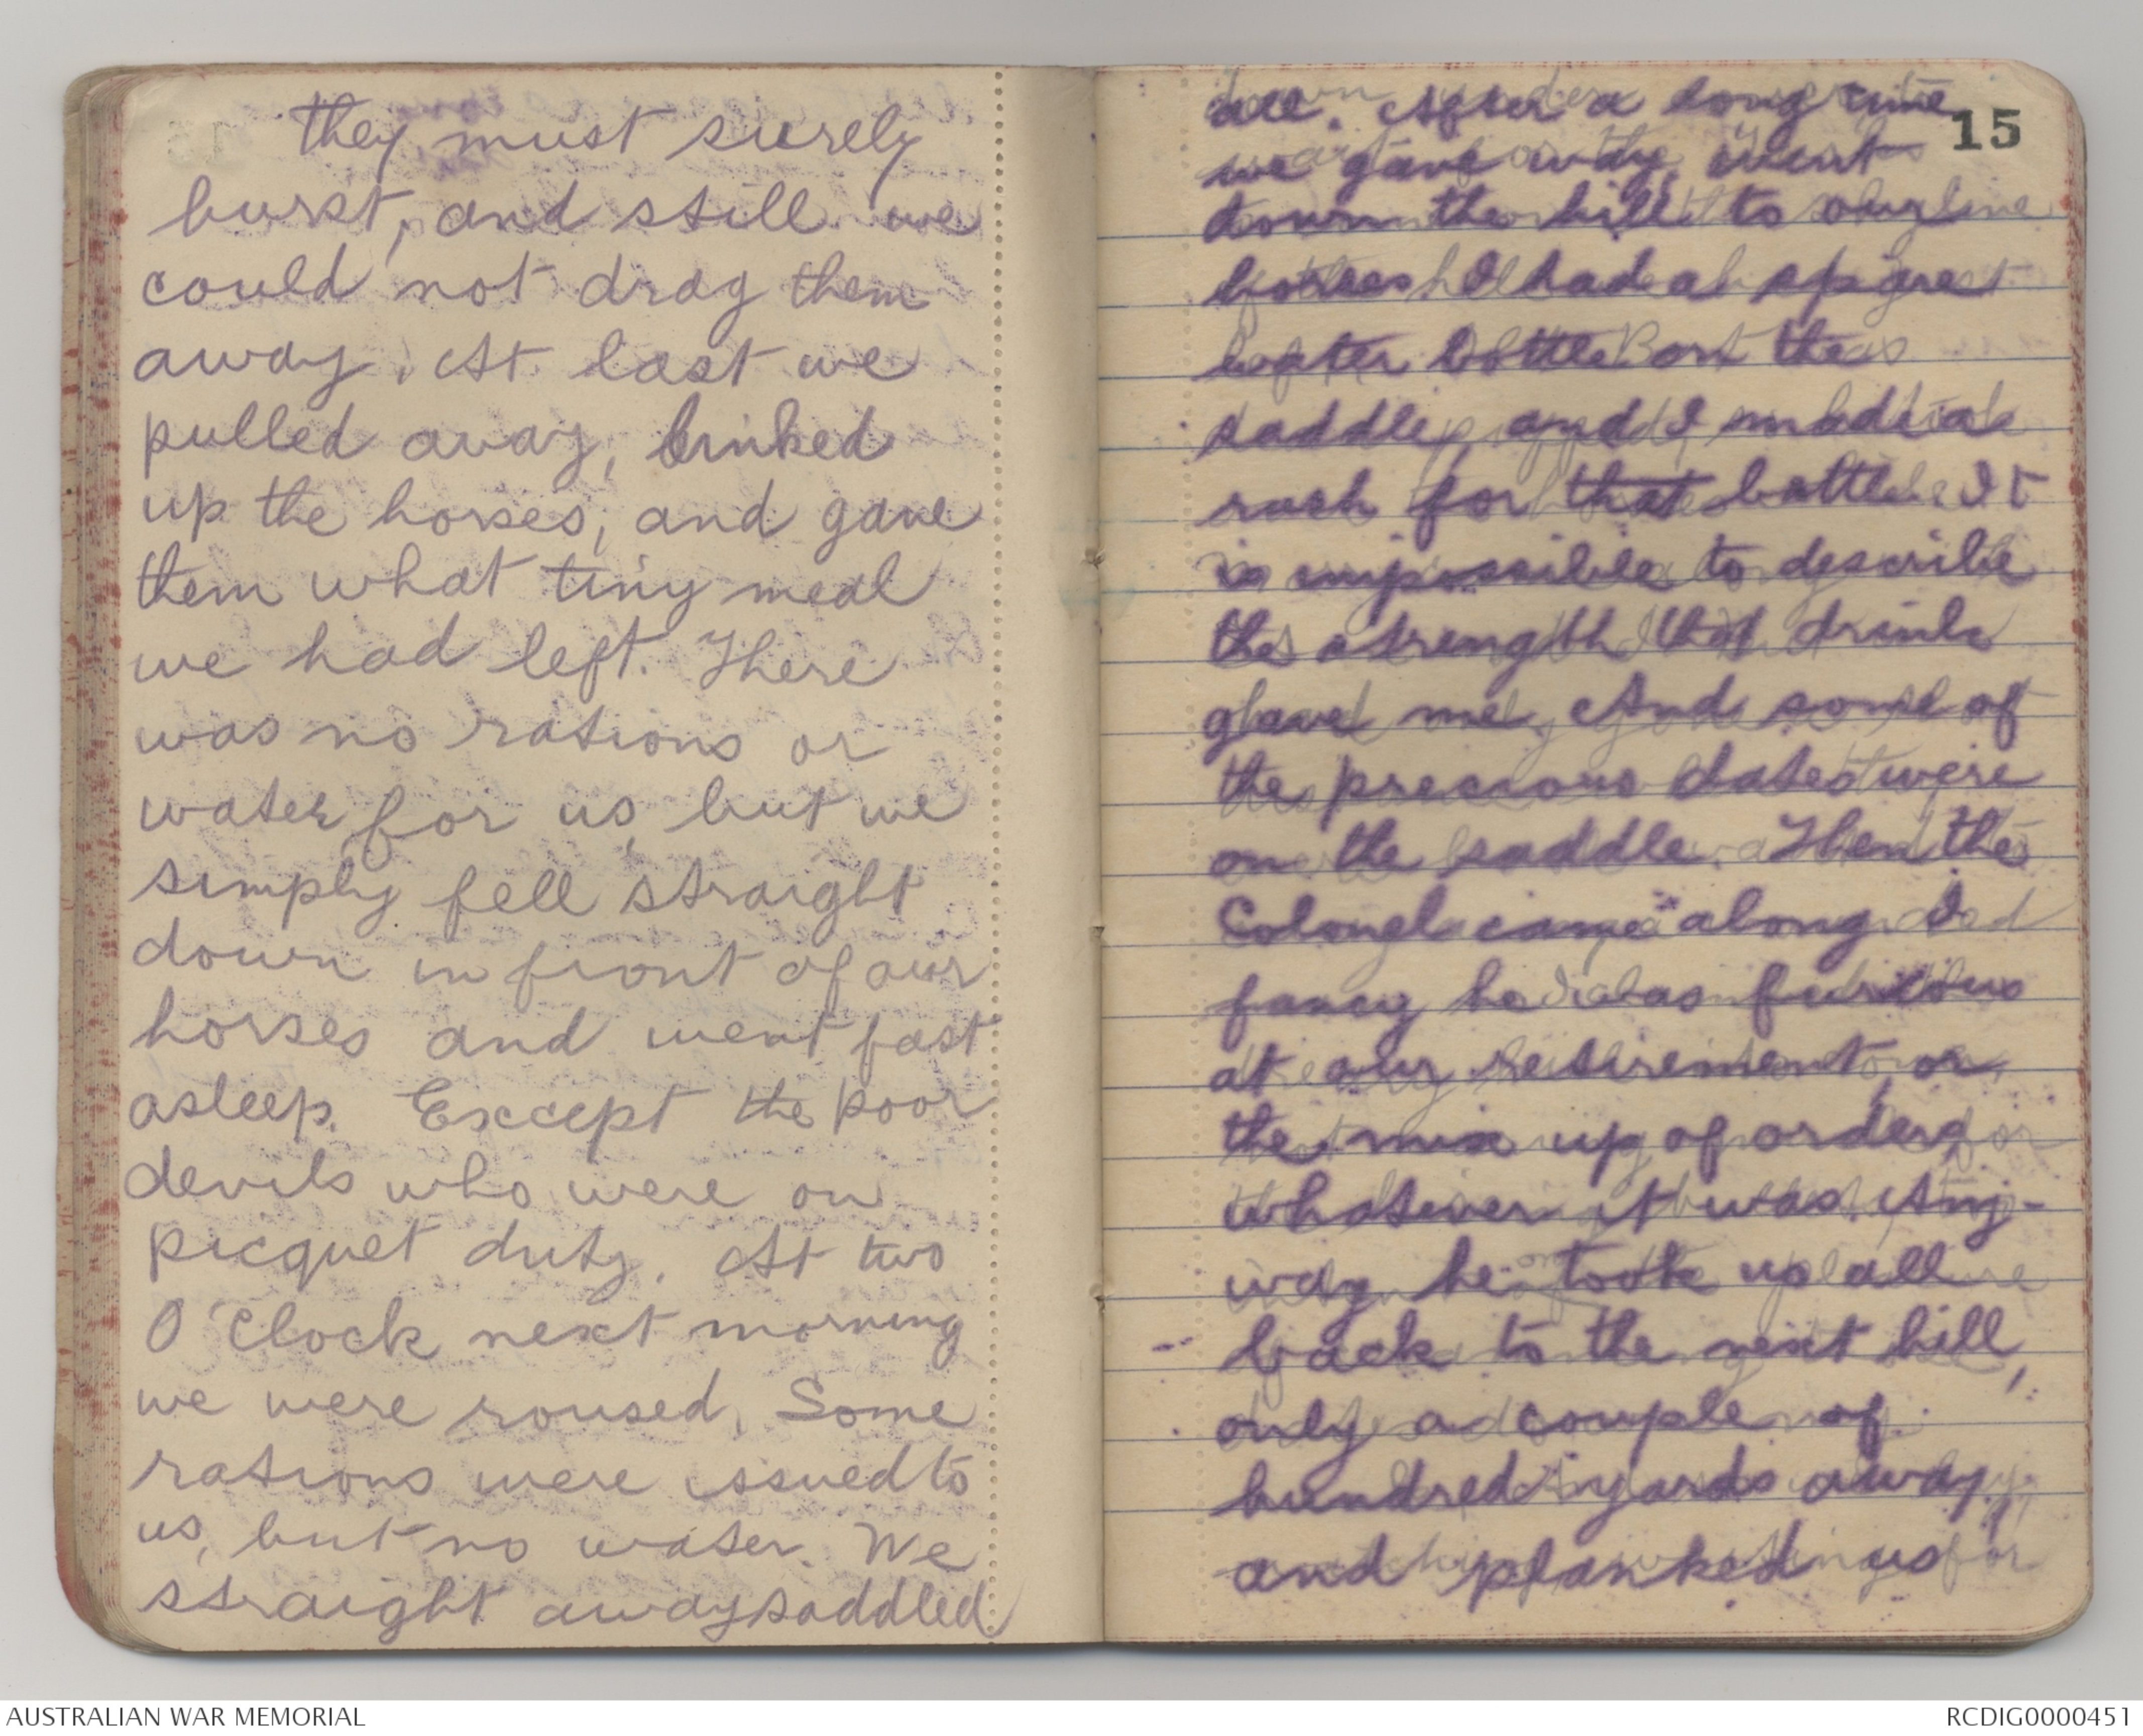 they must surely
burst, and still we
could not drag them
away. At last we
pulled away, linked
up the horses, and gave
them what tiny meal
we had left. There
was no rations or
water for us, but we
simply fell straight
down in front of our
horses and went fast
asleep. Except the poor
devils who were on
picquet duty. At two
O'Clock next morning
we were roused, Some
rations were issued to
us, but no water. We
straight away saddled
15
all. After a long time
we gave way, went
down the hill to our
horses I had a spare
water bottle on the
saddle, and I made a
rush for that bottle. It
is impossible to describe
the strength that drink
gave me. And some of
the precious dates were
on the saddle. Then the
Colonel came along. I
fancy he was furious
at our retirement, or
the mix up of orders,
whatever it was. Any-
way he took us all
back to the next hill,
only a couple of
hundred yards away,
and planked us
AUSTRALIAN WAR MEMORIAL
RCDIG0000451